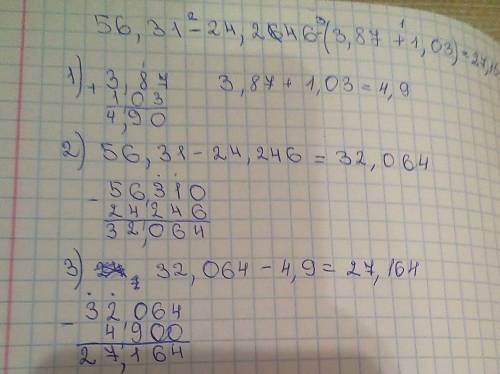 56,31 - 24,246 - (3,87 + 1,03) = 27,16
1) + 3,87 3,87 + 1,03 = 4,9
1,03
4,90
2) 56,31 - 24,246 = 32,064
- 56,310
24,246
32,064
3) 32,064 - 4,9 = 27,164
- 32,064
4,900
27,164